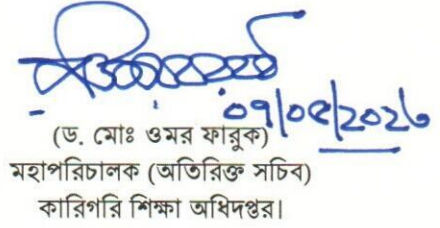 ০৭/০৫/২০২৩
(ড. মোঃ ওমর ফারুক)
মহাপরিচালক (অতিরিক্ত সচিব)
কারিগরি শিক্ষা অধিদপ্তর।